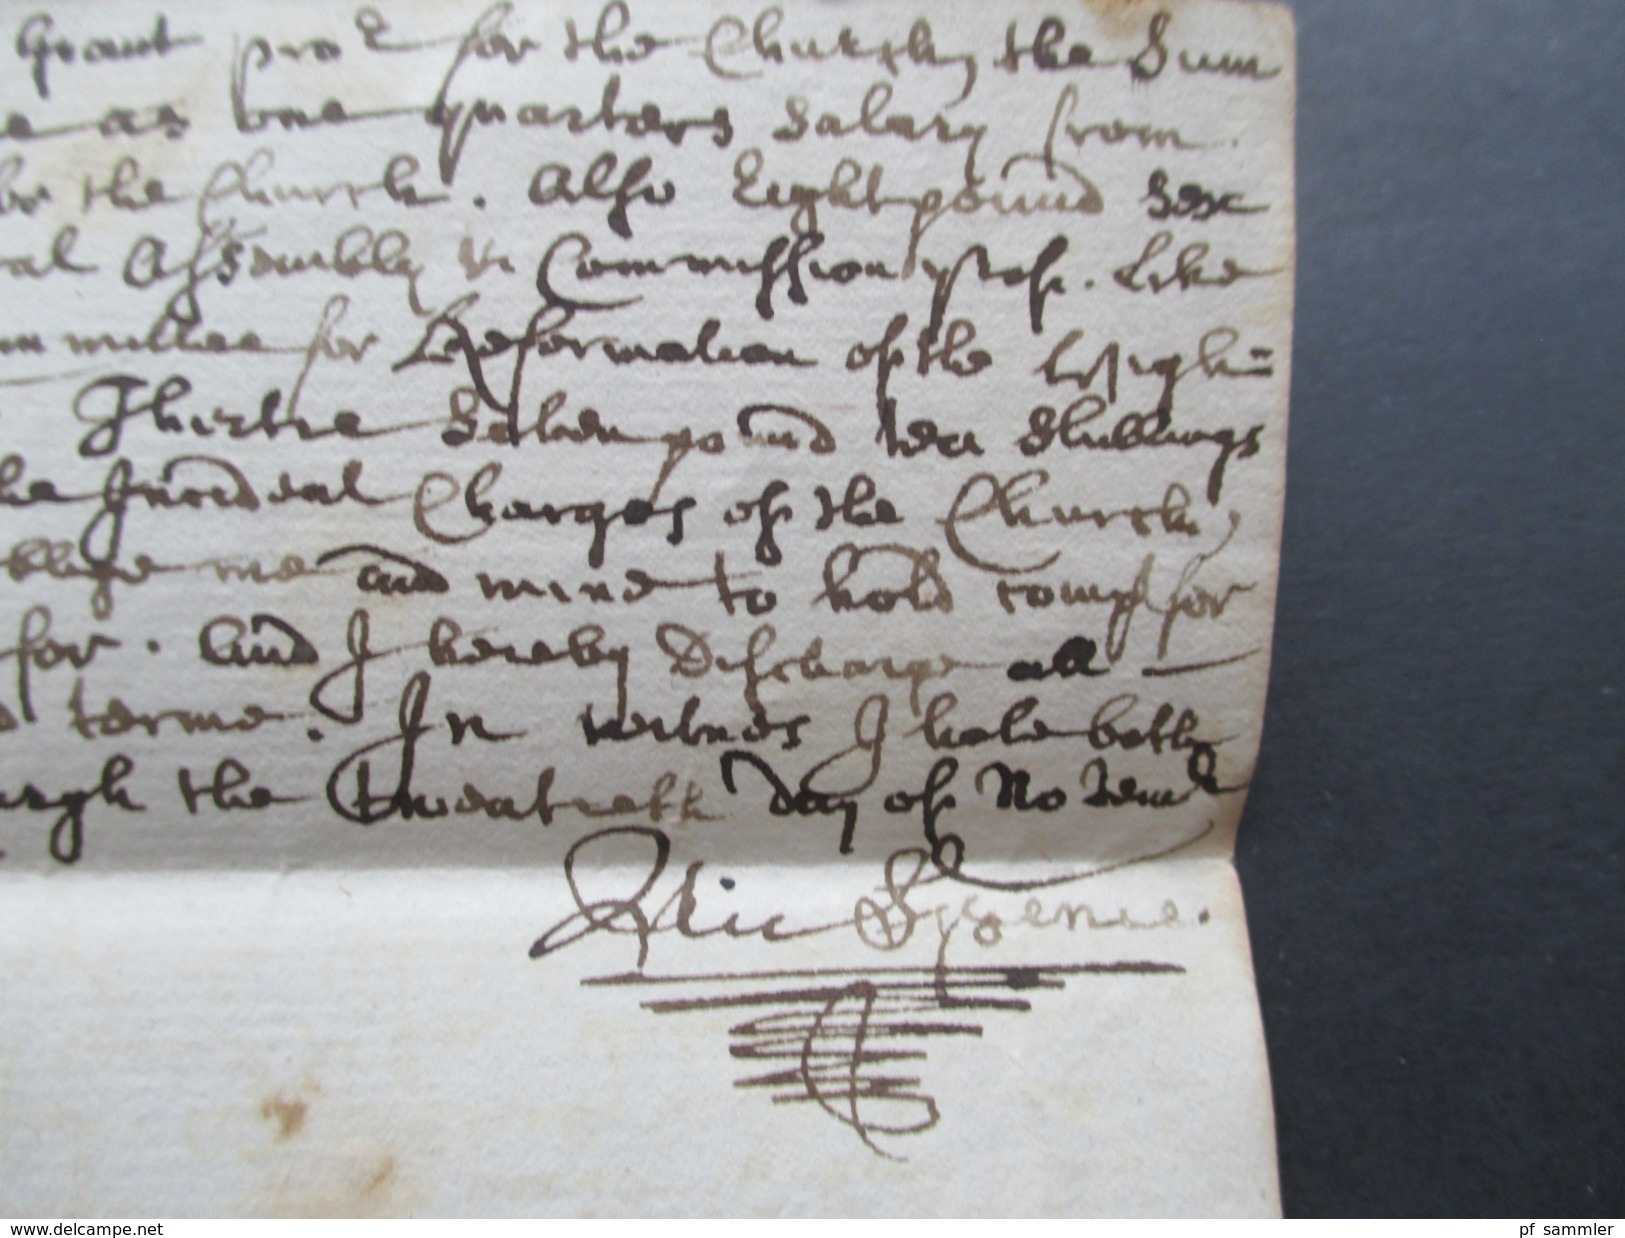 Grant pro^r for the Church, the Sum
as one quarters Salary from
the Church. Also Eight pound Sex
Assembly & Commission yrof. Like
for Reformation of the
Thirtie Seven pound ten Shillings
Incideal Charges of the Church,
me and mine to hold compt for
for. And I hereby Discharge all
terme. In witnes I have
the Twentieth Day of Novem^r
Nic Spence.
www.delcampe.net
pf_sammler